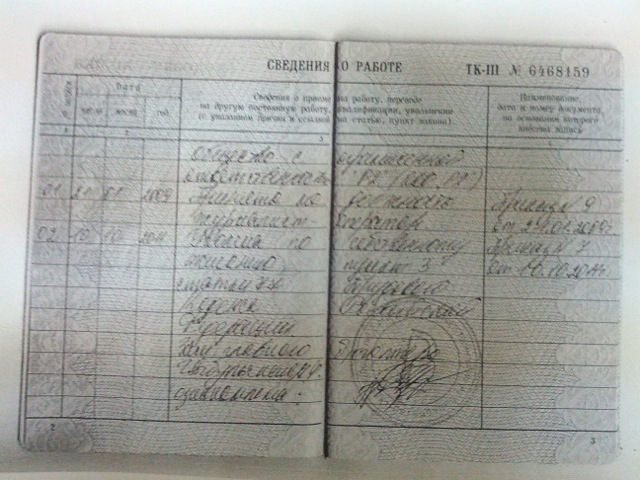 СВЕДЕНИЯ О РАБОТЕ ТК-III № 6468159
№ записи
Дата
число месяц год
Сведения о приеме на работу, переводе
на другую постоянную работу, квалификации, увольнении
(с указанием причин и ссылкой на статью, пункт закона)
Наименование,
дата и номер документа,
на основании которого
внесена запись
1 2 3 4
Общество с ограниченной
ответственностью
01 21 01 2009 Принята на должность Приказ № 9
журналист-оператор от 21.01.2009г
02 10 10 2011 Уволена по собственному Приказ № 7
желанию пункт 3 от 10.10.2011г.
статьи 77 Трудового
кодекса Российской
Федерации
главного бухгалтера
ознакомлена:
2 3